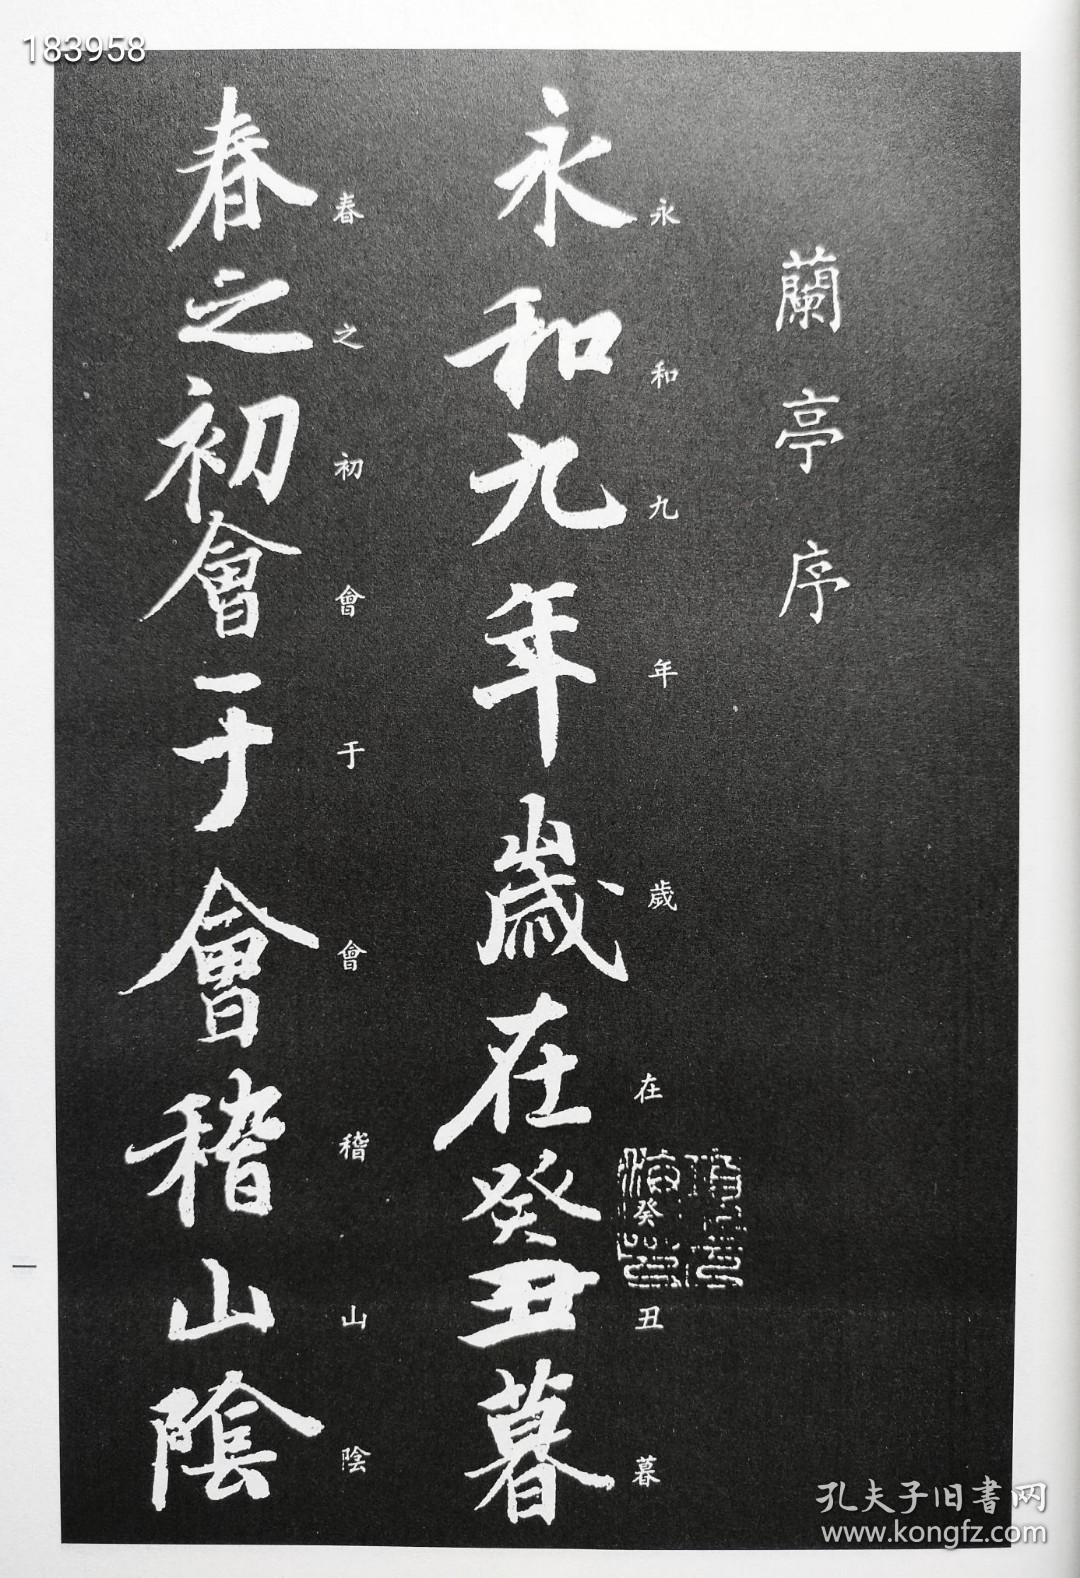 183958
蘭亭序
永和九年歲在癸丑暮
永和九年歲在癸丑暮
春之初會于會稽山陰
春之初會于會稽山陰
一
孔夫子旧書网
www.kongfz.com